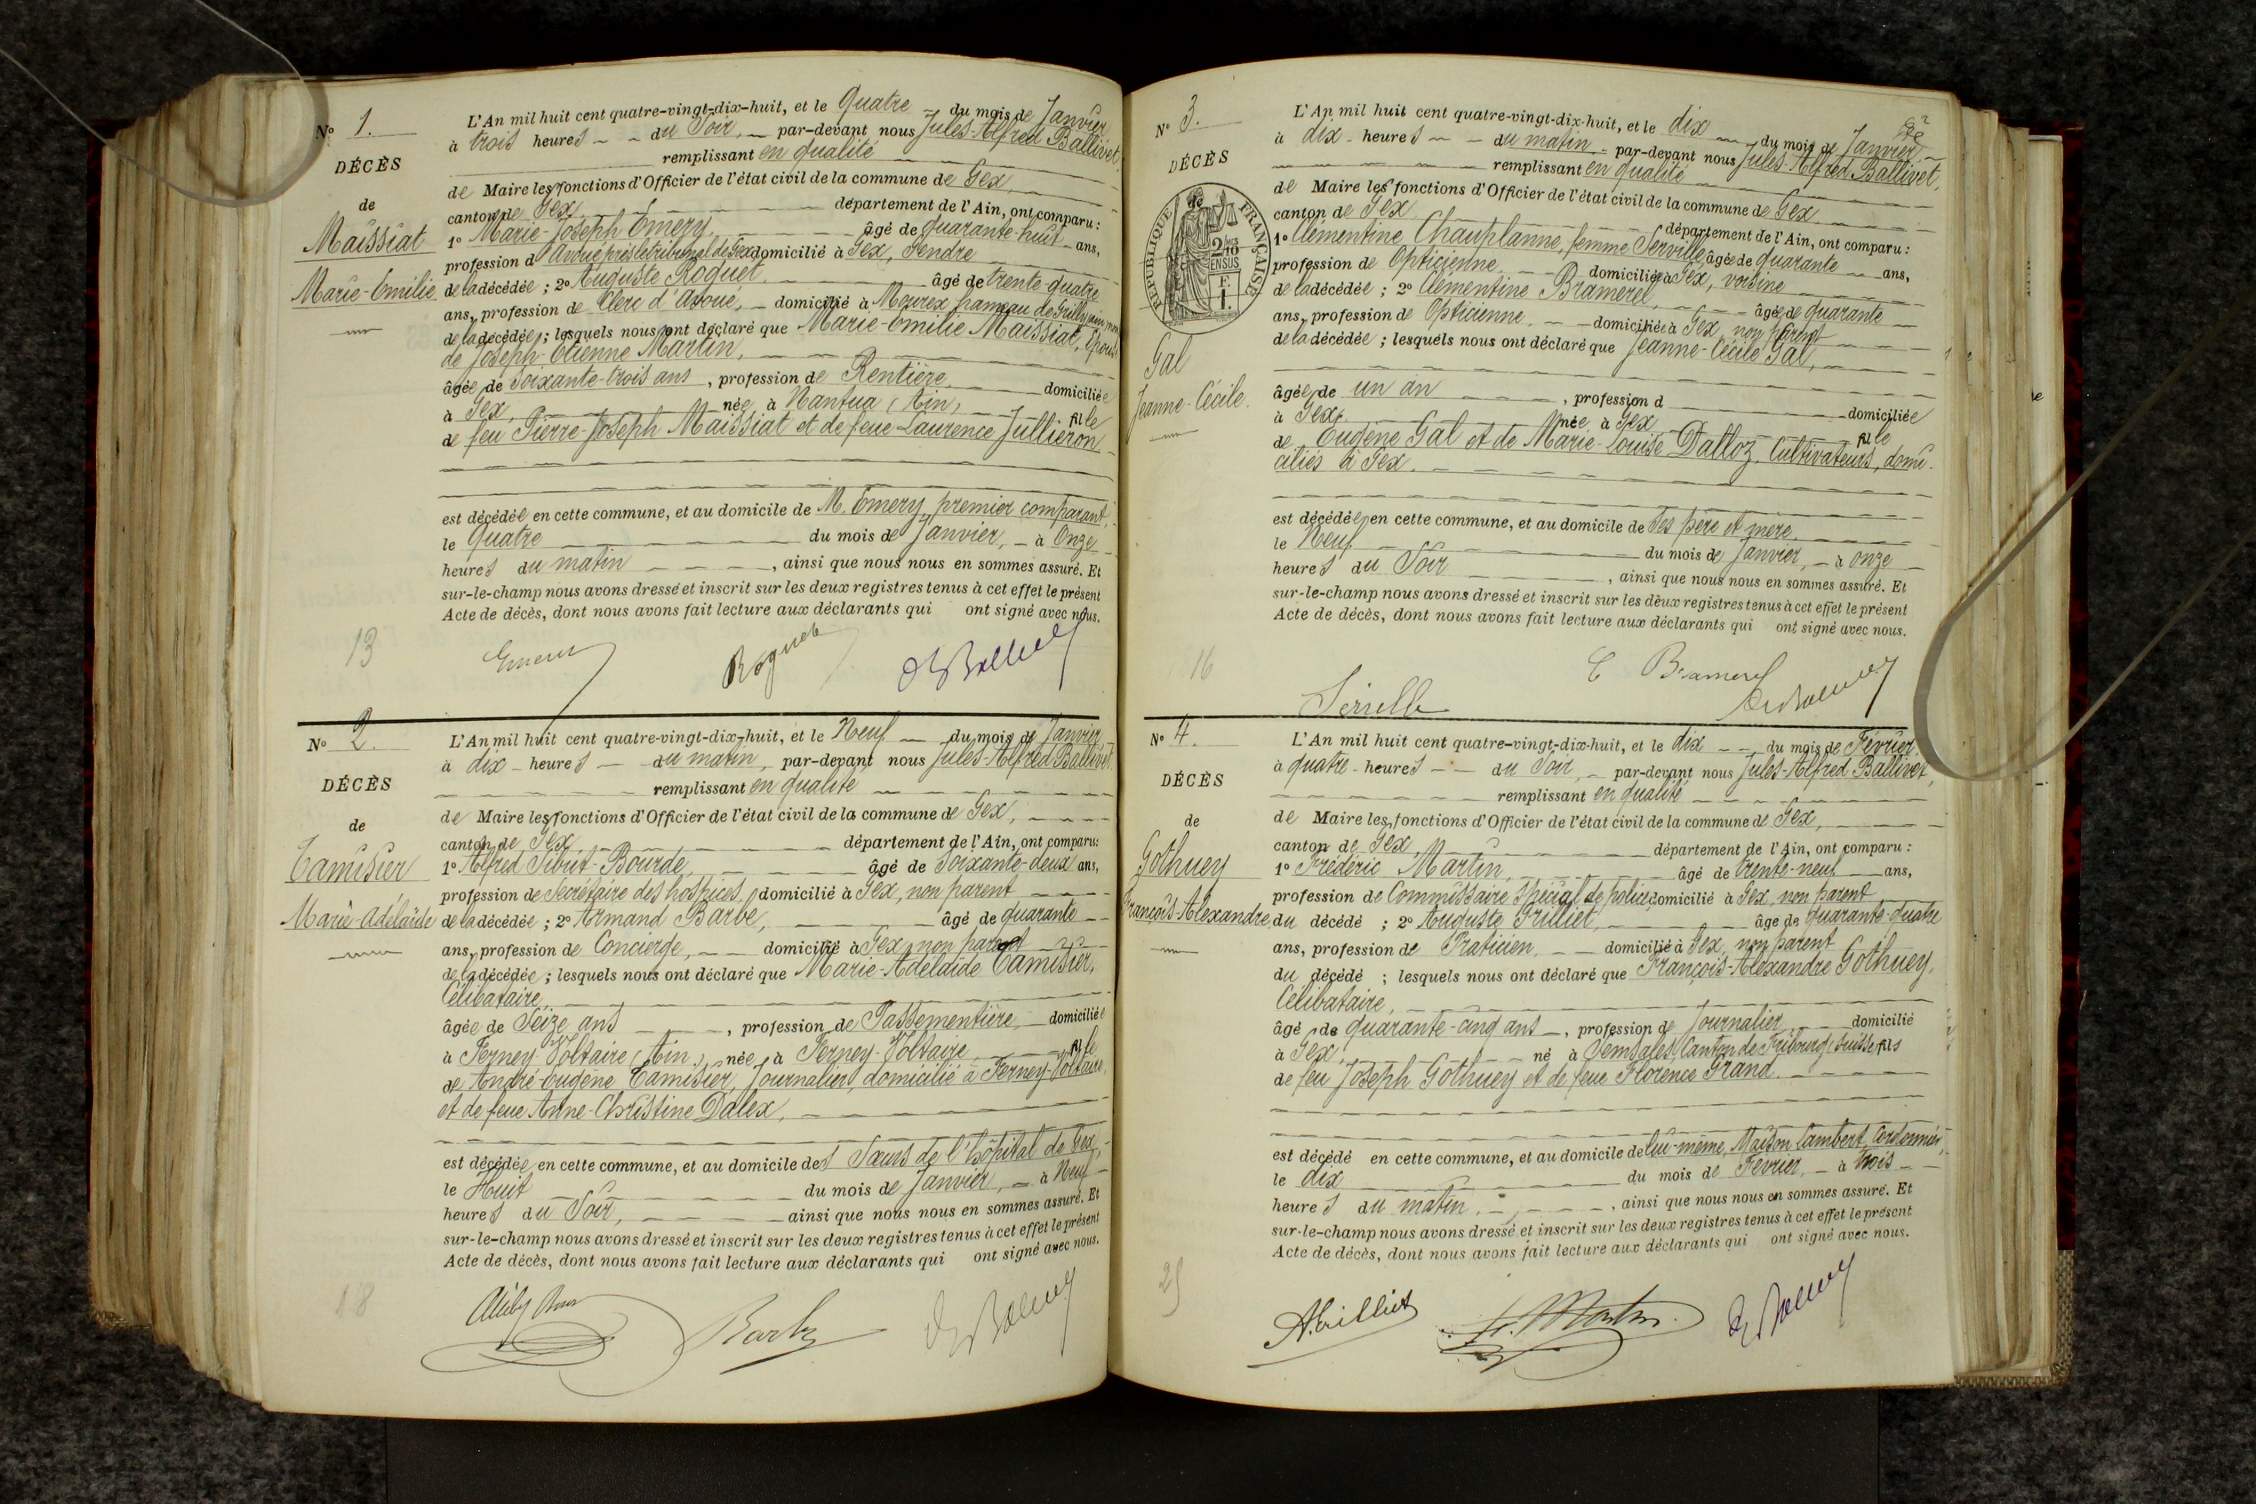 Nº 1.
DÉCÈS
de
Maissiat
Marie-Emilie
L'An mil huit cent quatre-vingt-dix-huit, et le Quatre du mois de Janvier
à trois heures du Soir, par-devant nous Jules-Alfred Ballivet,
remplissant en qualité
de Maire les fonctions d'Officier de l'état civil de la commune de Gex,
canton de Gex, département de l'Ain, ont comparu :
1º Marie-Joseph Emery, âgé de quarante-huit ans,
profession d'Avoué près le tribunal de Gex domicilié à Gex, Gendre
de la décédée ; 2º Auguste Roquet âgé de trente-quatre
ans, profession de Clerc d'avoué, domicilié à Mourex, hameau de Grilly,
de la décédée ; lesquels nous ont déclaré que Marie-Emilie Maissiat, Epouse
de Joseph-Etienne Martin,
âgée de Soixante-trois ans, profession de Rentière, domiciliée
à Gex, née à Nantua (Ain) fille
de feu Pierre-Joseph Maissiat et de feue Laurence Jullieron
est décédée en cette commune, et au domicile de M. Emery, premier comparant,
le Quatre du mois de Janvier, à Onze
heures du matin, ainsi que nous nous en sommes assuré. Et
sur-le-champ nous avons dressé et inscrit sur les deux registres tenus à cet effet le présent
Acte de décès, dont nous avons fait lecture aux déclarants qui ont signé avec nous.
13
Emery Roquet Ballivet
Nº 2.
DÉCÈS
de
Tamisier
Marie-Adélaïde
L'An mil huit cent quatre-vingt-dix-huit, et le Neuf du mois de Janvier
à dix heures du matin, par-devant nous Jules-Alfred Ballivet
remplissant en qualité
de Maire les fonctions d'Officier de l'état civil de la commune de Gex,
canton de Gex département de l'Ain, ont comparu :
1º Alfred Sibut-Bourde, âgé de Soixante-deux ans,
profession de Secrétaire des hospices, domicilié à Gex, non parent
de la décédée ; 2º Armand Barbe, âgé de quarante
ans, profession de Concierge, domicilié à Gex, non parent
de la décédée ; lesquels nous ont déclaré que Marie-Adélaïde Tamisier,
Célibataire,
âgée de Seize ans, profession de Passementière, domiciliée
à Ferney-Voltaire (Ain), née à Ferney-Voltaire, fille
de André-Eugène Tamisier, Journalier, domicilié à Ferney-Voltaire,
et de feue Anne-Christine Dalex,
est décédée en cette commune, et au domicile des Sœurs de l'hôpital de Gex,
le Huit du mois de Janvier, à Neuf
heures du Soir, ainsi que nous nous en sommes assuré. Et
sur-le-champ nous avons dressé et inscrit sur les deux registres tenus à cet effet le présent
Acte de décès, dont nous avons fait lecture aux déclarants qui ont signé avec nous.
18
Barbe Ballivet
Nº 3.
DÉCÈS
de
RÉPUBLIQUE FRANÇAISE
2/10
EN SUS
F.
1.
Gal
Jeanne-Cécile.
L'An mil huit cent quatre-vingt-dix-huit, et le dix du mois de Janvier
à dix heures du matin par-devant nous Jules-Alfred Ballivet,
remplissant en qualité
de Maire les fonctions d'Officier de l'état civil de la commune de Gex
canton de Gex département de l'Ain, ont comparu :
1º Clémentine Chauplanne, femme Serville âgée de quarante ans,
profession de Opticienne, domiciliée à Gex, voisine
de la décédée ; 2º Clémentine Bramerel, âgée de quarante
ans, profession de Opticienne, domiciliée à Gex, non parent
de la décédée ; lesquels nous ont déclaré que Jeanne-Cécile Gal,
âgée de un an, profession d domiciliée
à Gex, née à Gex fille
de Eugène Gal et de Marie-Louise Dalloz, Cultivateurs, domi-
ciliés à Gex.
est décédée en cette commune, et au domicile de Ses père et mère
le Neuf du mois de Janvier, à onze
heures du Soir, ainsi que nous nous en sommes assuré. Et
sur-le-champ nous avons dressé et inscrit sur les deux registres tenus à cet effet le présent
Acte de décès, dont nous avons fait lecture aux déclarants qui ont signé avec nous.
16
C Bramerel
Nº 4.
DÉCÈS
de
Gothuey
François-Alexandre
L'An mil huit cent quatre-vingt-dix-huit, et le dix du mois de Février
à quatre heures du Soir, par-devant nous Jules-Alfred Ballivet,
remplissant en qualité
de Maire les fonctions d'Officier de l'état civil de la commune de Gex,
canton de Gex, département de l'Ain, ont comparu :
1º Frédéric Martin, âgé de trente-neuf ans,
profession de Commissaire spécial de police, domicilié à Gex, non parent
du décédé ; 2º Auguste Grilliet, âgé de quarante-quatre
ans, profession de Praticien, domicilié à Gex, non parent
du décédé ; lesquels nous ont déclaré que François-Alexandre Gothuey,
Célibataire,
âgé de quarante-cinq ans, profession de Journalier domicilié
à Gex, né à Semsales, Canton de Fribourg (Suisse) fils
de feu Joseph Gothuey et de feue Florence Grand.
est décédé en cette commune, et au domicile de lui-même, Maison Lambert, Cordonnier,
le dix du mois de Février, à trois
heures du matin, ainsi que nous nous en sommes assuré. Et
sur-le-champ nous avons dressé et inscrit sur les deux registres tenus à cet effet le présent
Acte de décès, dont nous avons fait lecture aux déclarants qui ont signé avec nous.
25
A. Grilliet F. Martin Ballivet